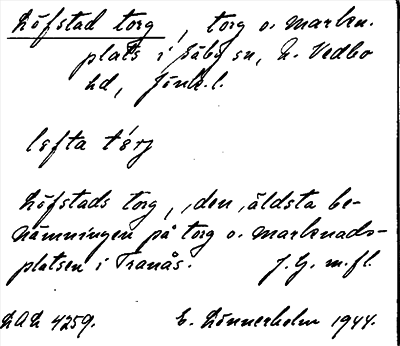 Löfstad torg, torg o. markn.
plats i Säby sn, N. Vedbo
hd, Jönk. l.
lefta tǽrj
Löfstads torg, „den äldsta be-
nämningen på torg o. marknads-
platsen i Tranås. J. G. m. fl.
LAL 4259. E. Lönnerholm 1944.